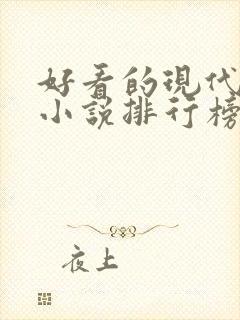 好看的现代
小说排行榜
夜上